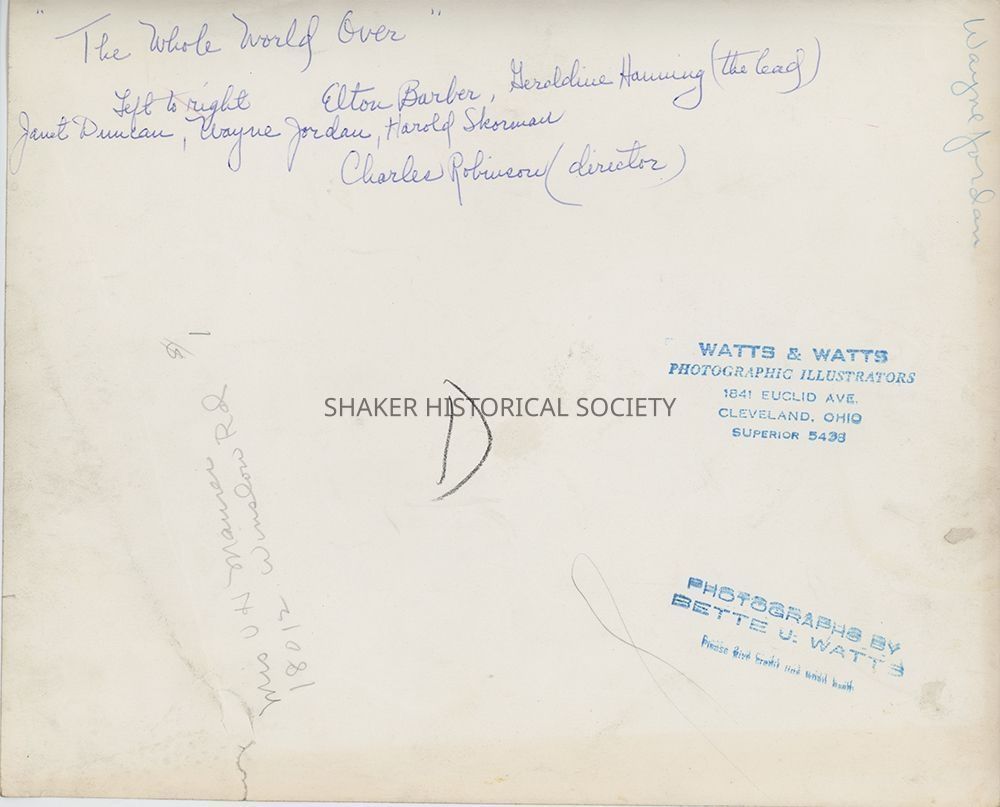 "The Whole World Over"
Left to right Elton Barber, Geraldine Hanning (the lead)
Janet Duncan, Wayne Jordan, Harold Skorman
Charles Robinson (director)
Wayne Jordan
WATTS & WATTS
PHOTOGRAPHIC ILLUSTRATORS
1841 EUCLID AVE.
CLEVELAND, OHIO
SUPERIOR 5438
SHAKER HISTORICAL SOCIETY
D
18012 Winslow Rd
PHOTOGRAPHS BY
BETTE U. WATTS
Please give credit and